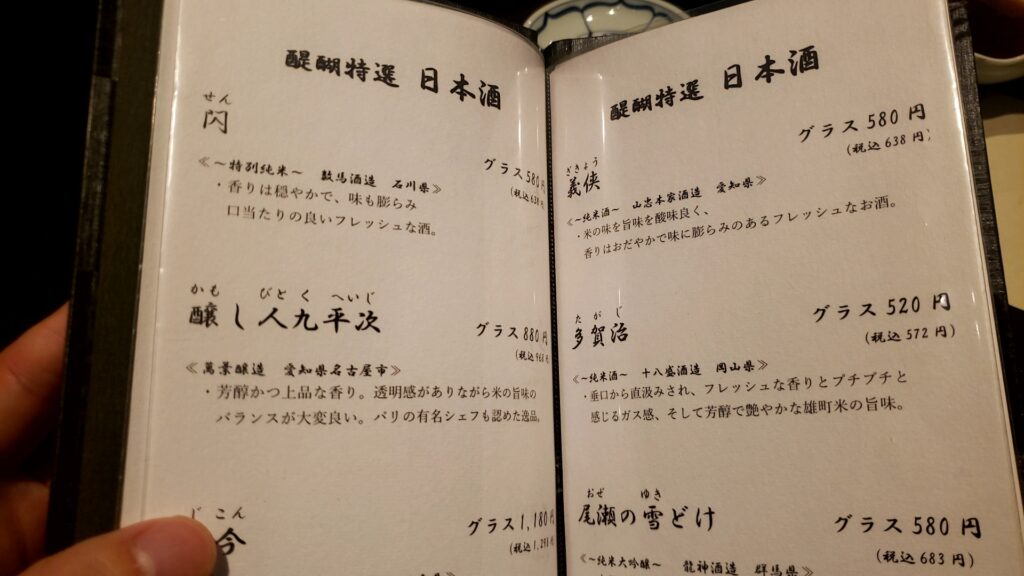 醍醐特選 日本酒
せん
閃
グラス 580 円
(税込 638 円)
≪～特別純米～ 数馬酒造 石川県≫
・香りは穏やかで、味も膨らみ
口当たりの良いフレッシュな酒。
かも びとく へいじ
醸し人九平次
グラス 880 円
(税込 968 円)
≪萬景醸造 愛知県名古屋市≫
・芳醇かつ上品な香り。透明感がありながら米の旨味の
バランスが大変良い。パリの有名シェフも認めた逸品。
じ こん
今
グラス 1,180 円
(税込 1,298 円)
醍醐特選 日本酒
グラス 580 円
(税込 638 円)
ぎきょう
義侠
≪～純米酒～ 山忠本家酒造 愛知県≫
・米の味を旨味を酸味良く、
香りはおだやかで味に膨らみのあるフレッシュなお酒。
グラス 520 円
(税込 572 円)
たがじ
多賀治
≪～純米酒～ 十八盛酒造 岡山県≫
・垂口から直汲みされ、フレッシュな香りとプチプチと
感じるガス感、そして芳醇で艶やかな雄町米の旨味。
おぜ ゆき
尾瀬の雪どけ
グラス 580 円
(税込 683 円)
≪～純米大吟醸～ 龍神酒造 群馬県≫